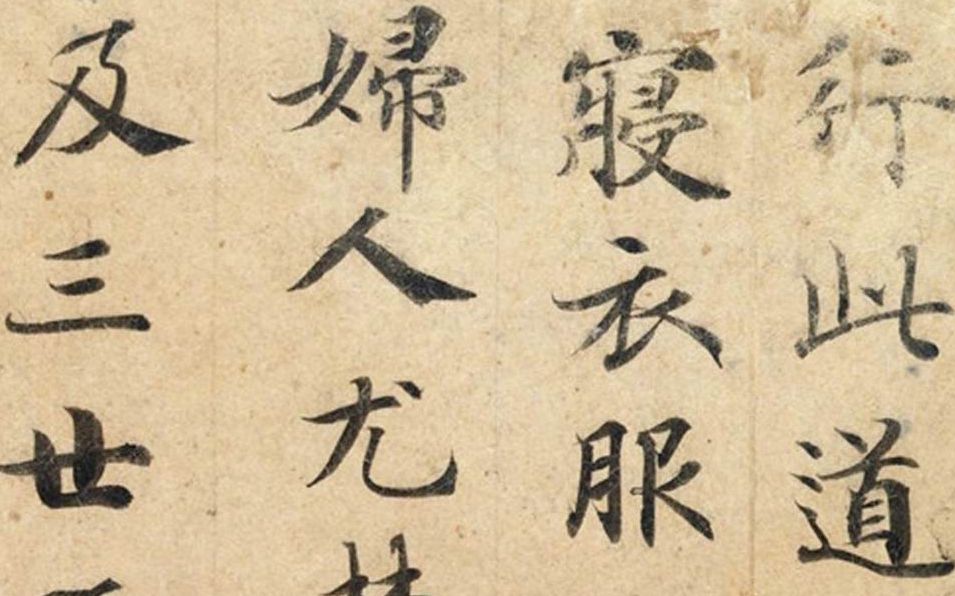 行此道
寢衣服
婦人尤
及三世